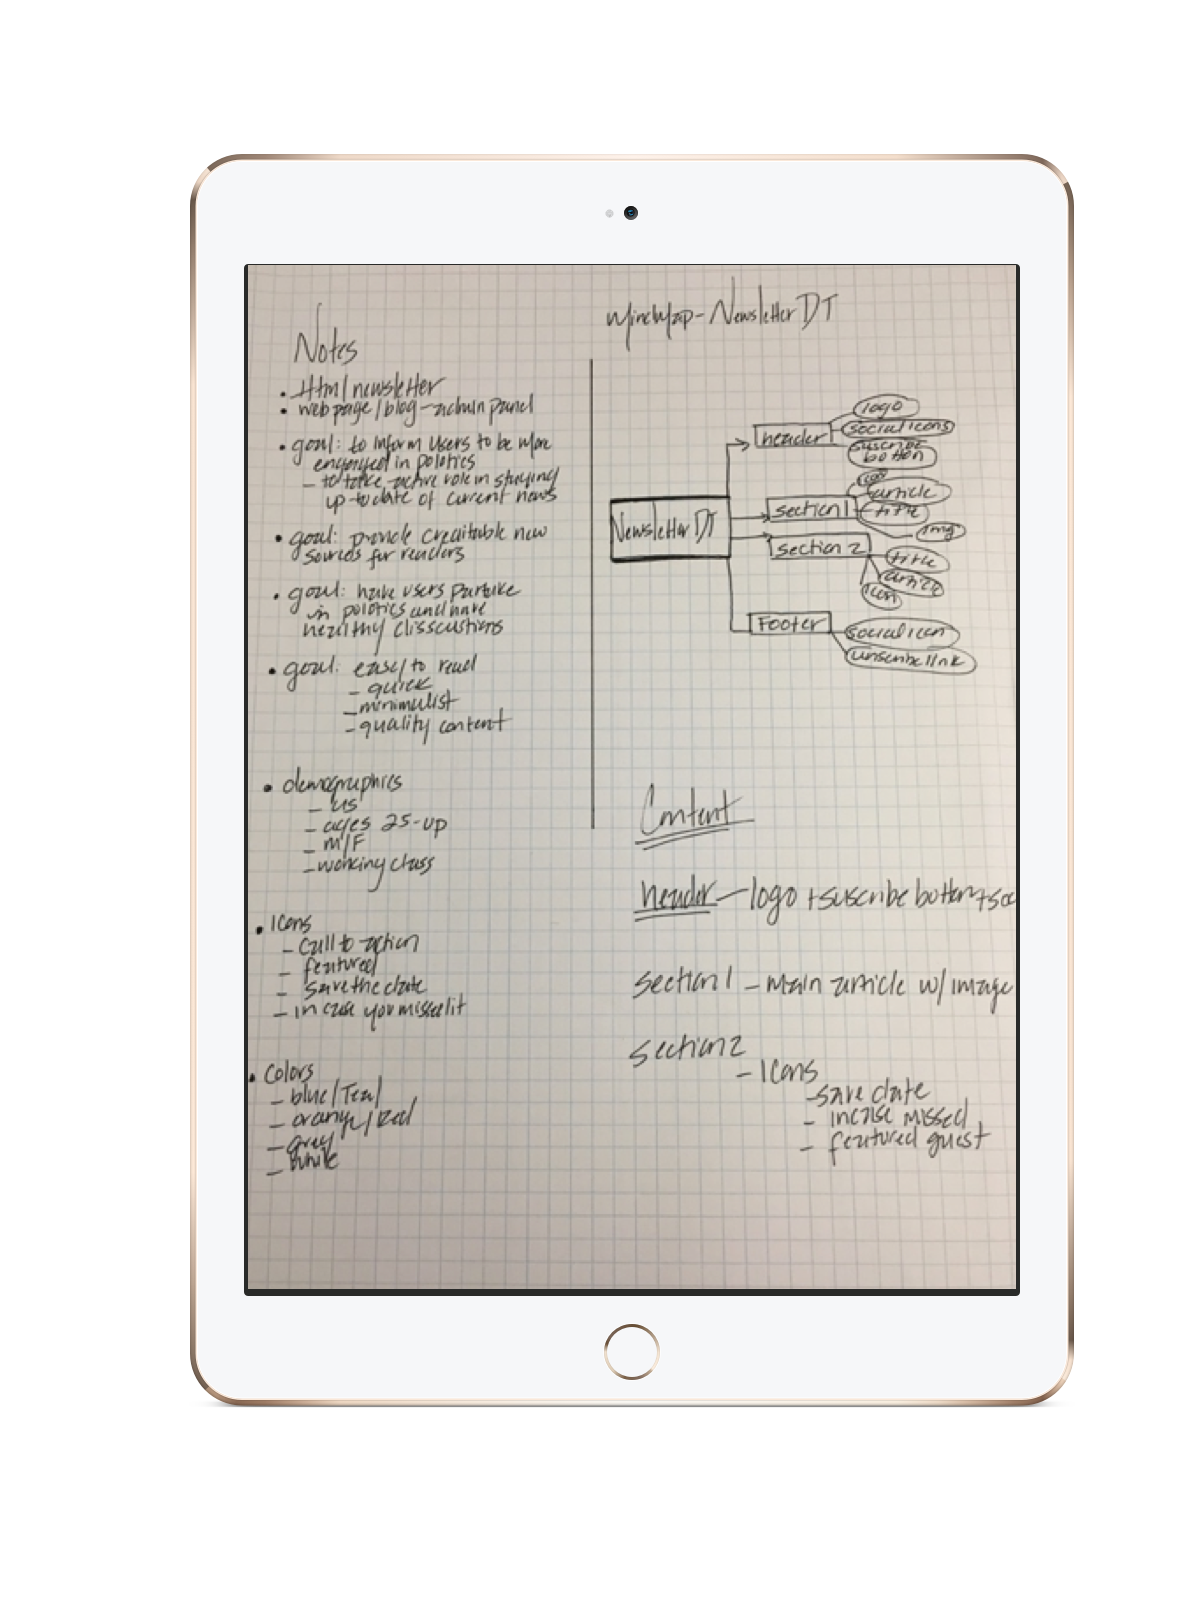 Notes
• Html newsletter
• webpage/blog - admin panel
• goal: to inform users to be more
engaged in polotics
- to take active role in staying
up-to date of current news
• goal: provide creaitable new
sources for readers
• goal: have users partake
in polotics and have
healthy
• goal: easy to read
- quick
- minimulist
- quality content
• demographics
- us
- ages 25-up
- M/F
- working class
• Icons
- call to action
- featured
- save the date
- in case you missed it
• Colors
- blue/Teal
- orange/Red
- grey
- white
MindMap - Newsletter DT
Newsletter DT
header
logo
social icons
suscribe
botton
section 1
icon
article
title
img
section 2
title
article
icon
Footer
social icon
unscribe link
Content
header - logo + suscribe botton + soc
section 1 - main article w/ image
section 2
- Icons
- save date
- incase missed
- featured guest